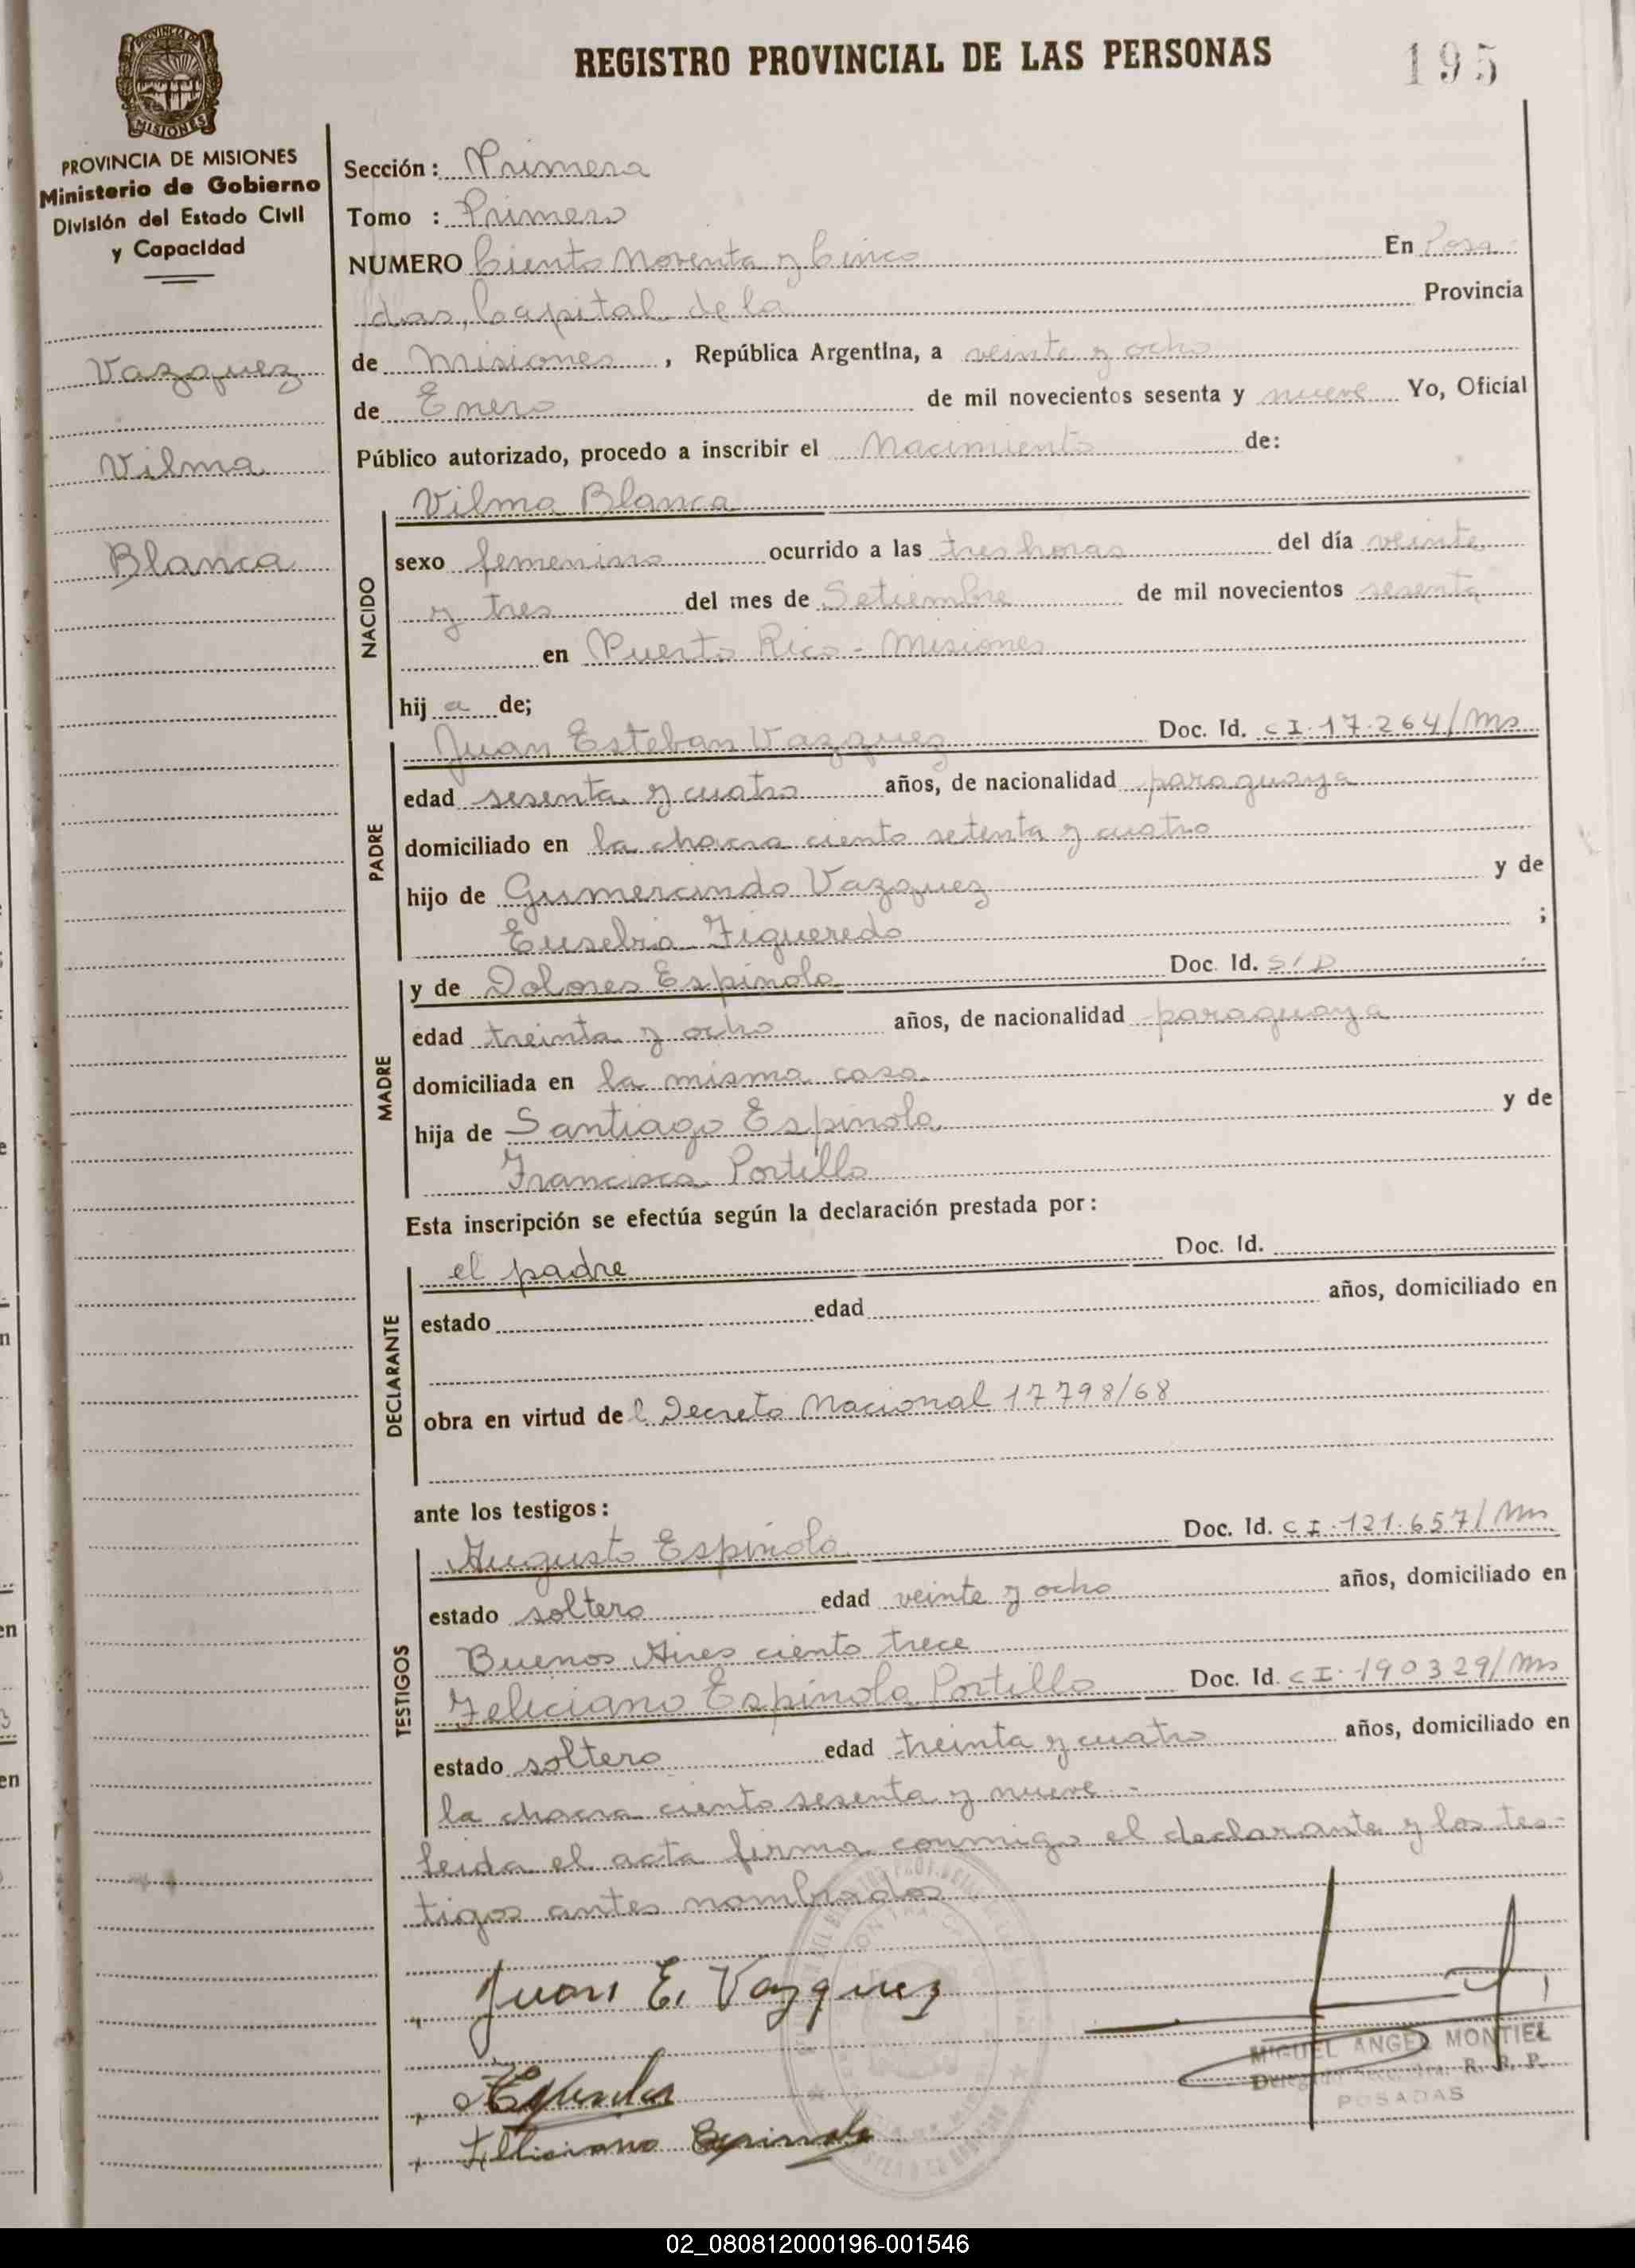 REGISTRO PROVINCIAL DE LAS PERSONAS
195
MISIONES
PROVINCIA DE MISIONES
Ministerio de Gobierno
División del Estado Civil
y Capacidad
Vazquez
Vilma
Blanca
Sección: Primera
Tomo : Primero
NUMERO Ciento Noventa y Cinco En Posa
das, Capital de la Provincia
de Misiones, República Argentina, a veinte y ocho
de Enero de mil novecientos sesenta y nueve Yo, Oficial
Público autorizado, procedo a inscribir el Nacimiento de:
Vilma Blanca
NACIDO
sexo femenino ocurrido a las tres horas del día veinte
y tres del mes de Setiembre de mil novecientos sesenta
en Puerto Rico - Misiones
hij a de;
PADRE
Juan Esteban Vazquez Doc. Id. CI.17.264/Ms
edad sesenta y cuatro años, de nacionalidad paraguaya
domiciliado en la chacra ciento setenta y cuatro
hijo de Gumercindo Vazquez y de
Eusebia Figueredo ;
MADRE
y de Dolores Espinola Doc. Id. S/D
edad treinta y ocho años, de nacionalidad paraguaya
domiciliada en la misma casa
hija de Santiago Espinola y de
Francisca Portillo
Esta inscripción se efectúa según la declaración prestada por:
DECLARANTE
el padre Doc. Id.
estado edad años, domiciliado en
obra en virtud del Decreto Nacional 17798/68
ante los testigos:
TESTIGOS
Augusto Espinola Doc. Id. CI.121.657/Ms
estado soltero edad veinte y ocho años, domiciliado en
Buenos Aires ciento trece
Feliciano Espinola Portillo Doc. Id. CI.190329/Ms
estado soltero edad treinta y cuatro años, domiciliado en
la chacra ciento sesenta y nueve.-
leida el acta firma conmigo el declarante y los tes-
tigos antes nombrados
Juan E. Vazquez
MIGUEL ANGEL MONTIEL
R. P.
POSADAS
Espinola
02_080812000196-001546